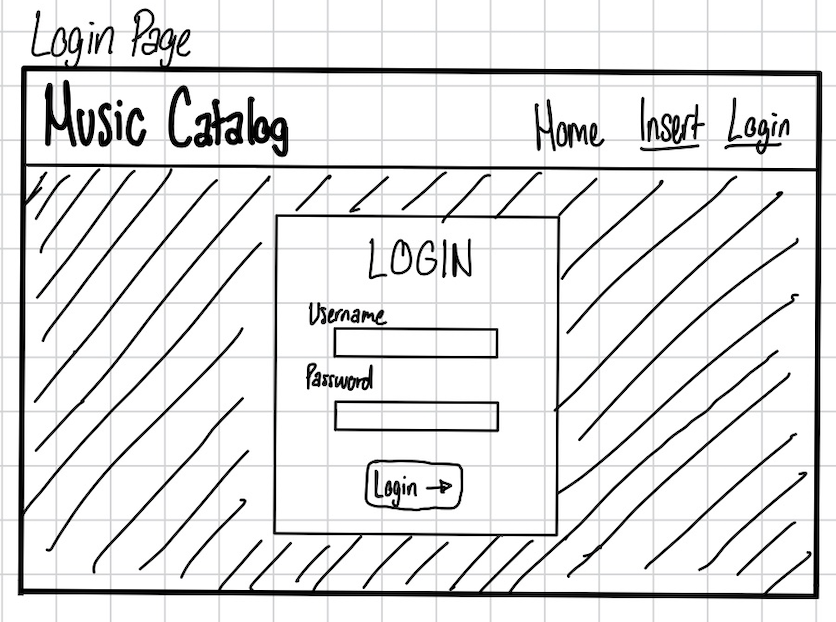 Login Page
Music Catalog Home Insert Login
LOGIN
Username
Password
Login →